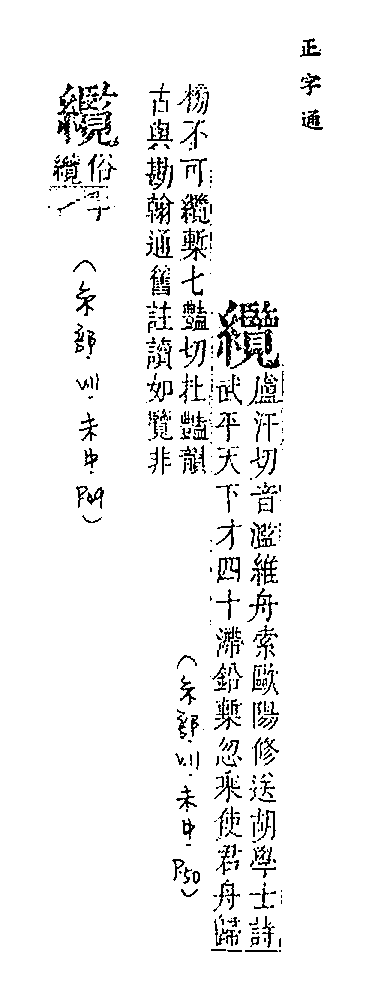 正字通
纜
盧汗切音濫維舟索歐陽修送胡學士詩
武平天下才四十滯鉛槧忽乘使君舟歸
榜不可纜槧七豔切杜豔韻
古與勘翰通舊註讀如覽非
(糸部 刂·未中·P50)
纜
俗
纜
字
(糸部 刂·未中·P49)